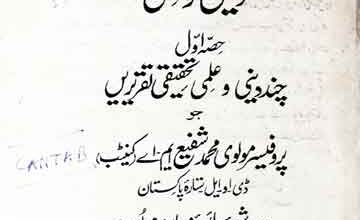 حصہ اول
چند دینی و علمی تحقیقی تقریریں
جو
پروفیسر مولوی محمد شفیع ایم-اے (کینٹب)
CANTAB
ڈی او ایل ستارۂ پاکستان